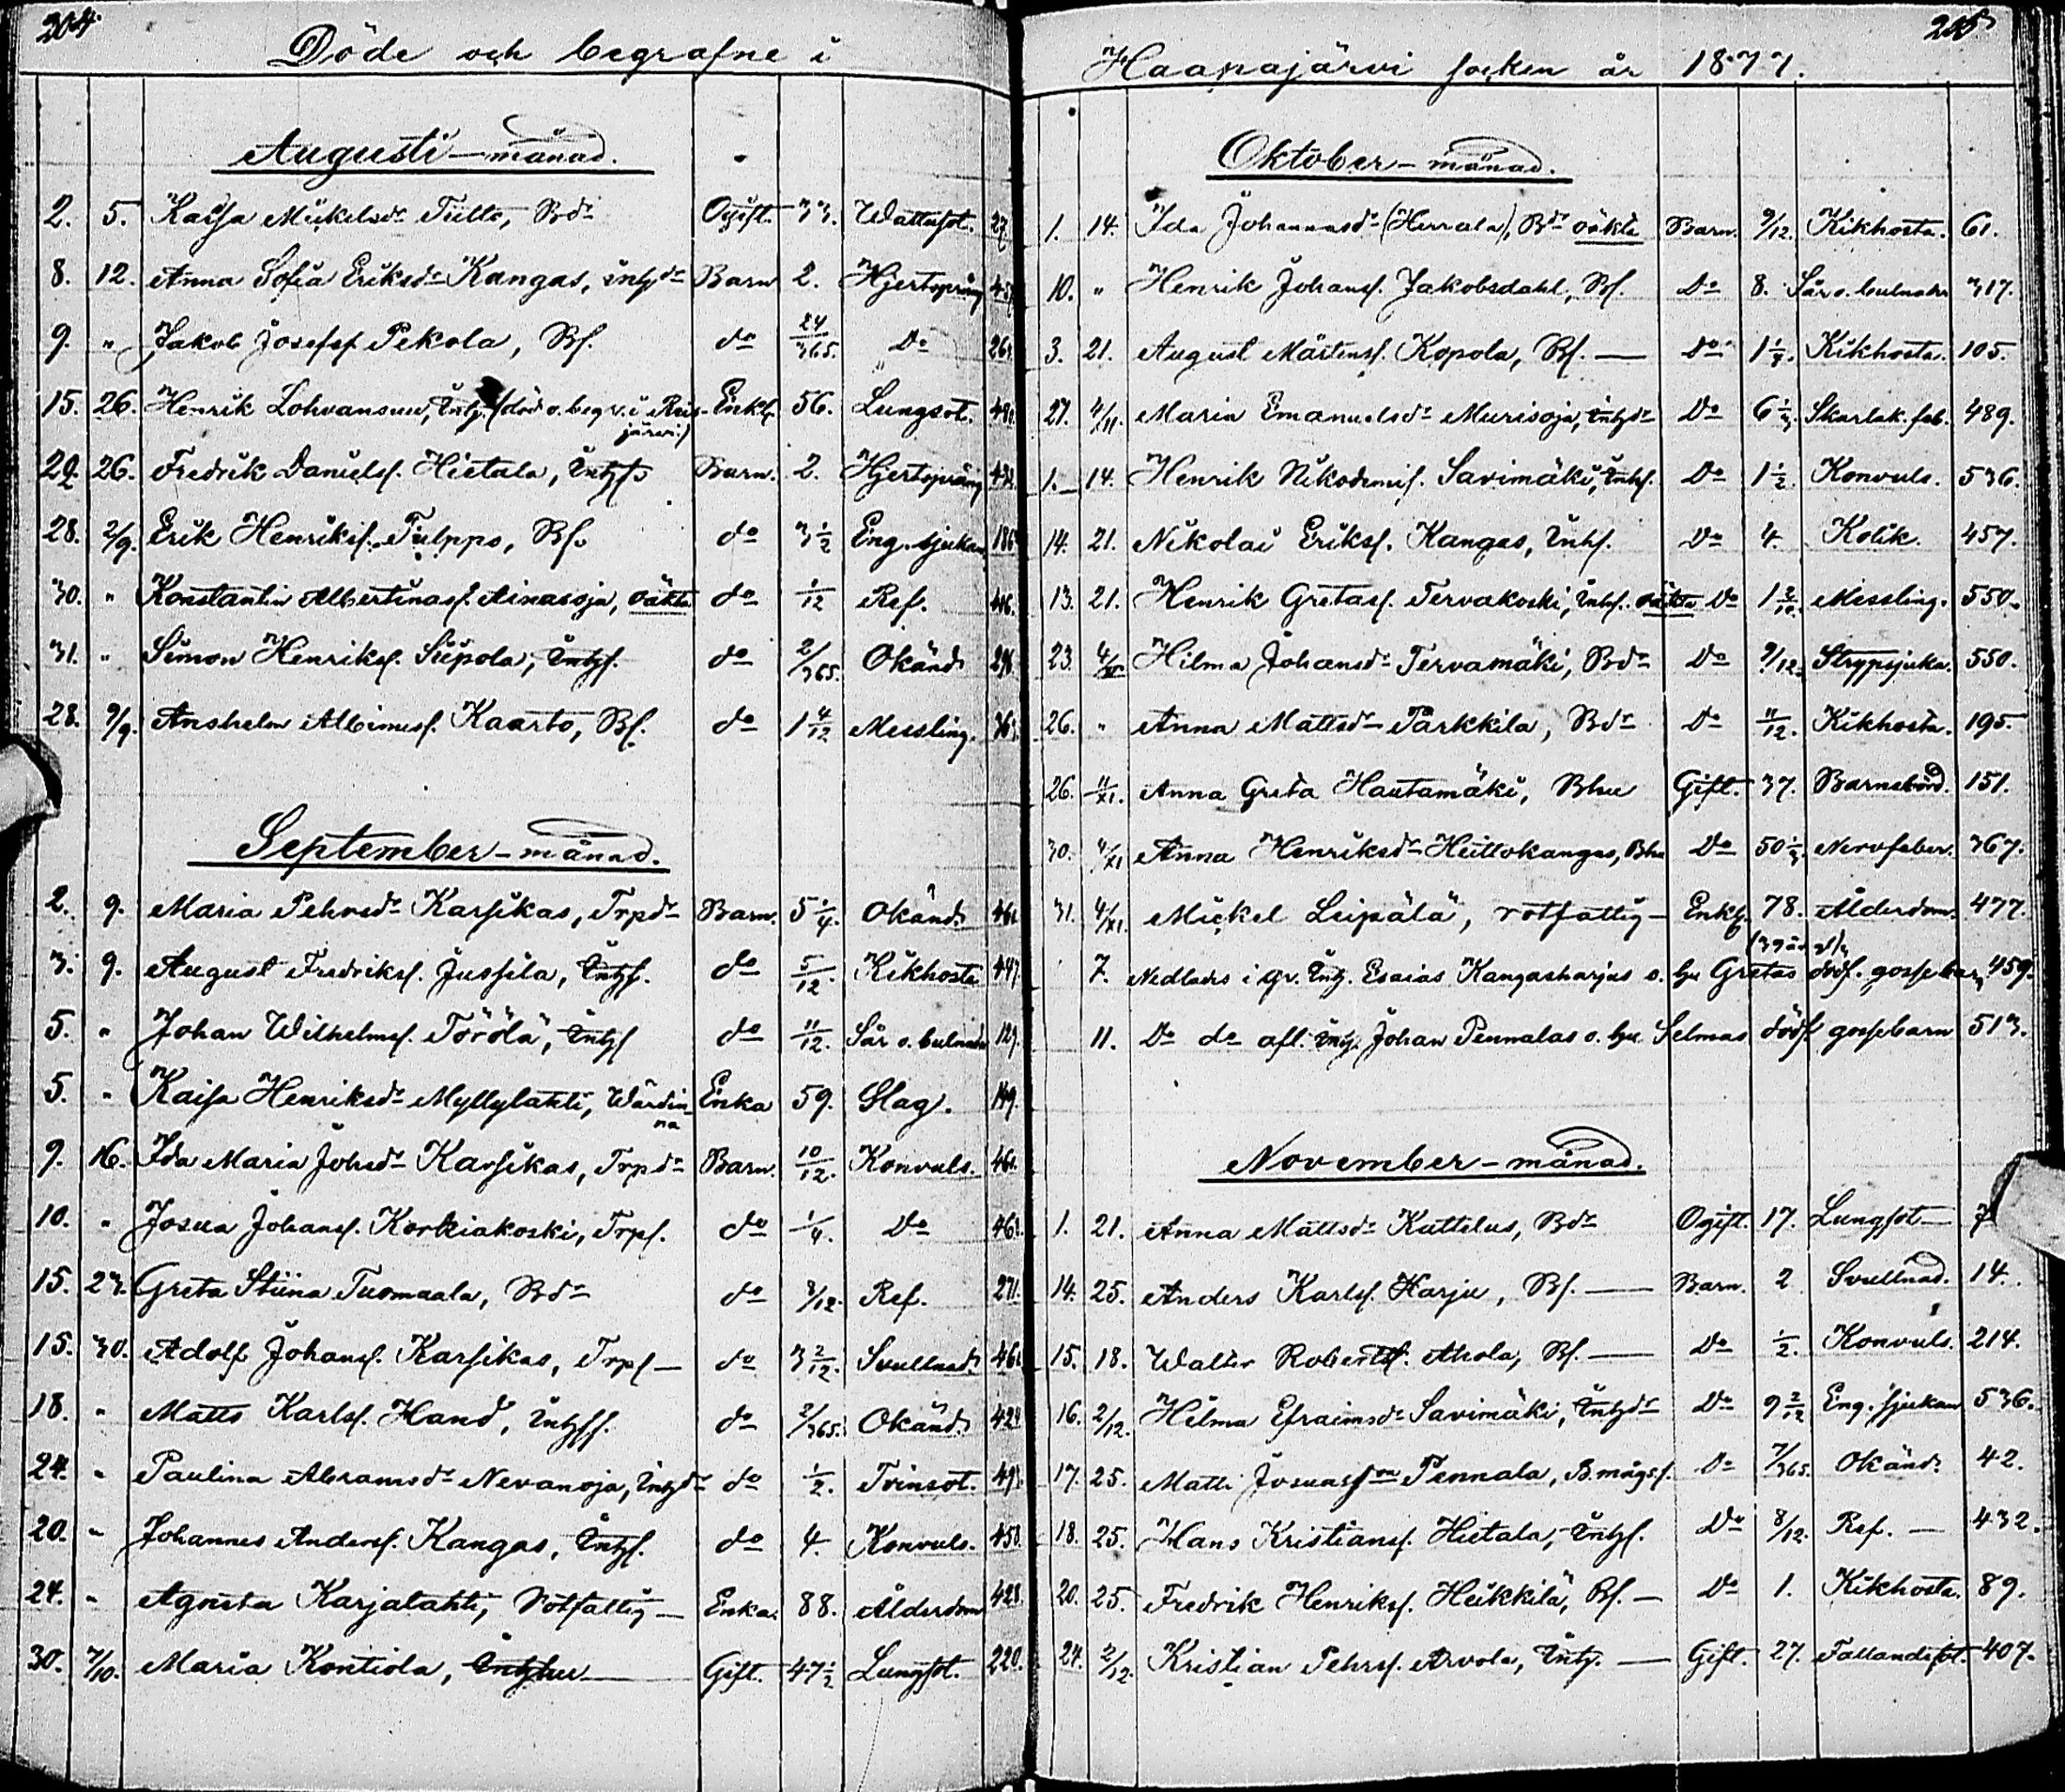 204.
Döde och begrafne i
Augusti-månad.
2. 5. Kaisa Mickelsdr Tulto, Bdr Ogift. 77. Wattusot. 27.
8. 12. Anna Sofia Eriksdr Kangas, inhdr Barn 2. Hjertsprång 457
9. " Jakob Josefsf. Pekola, Bf. do 24/365. Do 26
15. 26. Henrik Lohvansuu, Inh. (död o. begr. i Reis- Enkl. 56. Lungsot.
järvi)
29. 26. Fredrik Danielsf. Hietala, Inhs Barn. 2. Hjertsprång 432
28. 2/9. Erik Henriksf. Tulppo, Bf. do 3 1/2 Eng. sjukan 186
30. " Konstantin Albertinasf. Ainasoja, oäkta do 1/12 Ref. 416.
31. " Simon Henriksf. Siipola, Inhs. do 2/365. Okänd. 296.
28. 9/9. Anshelm Albinusf. Kaarto, Bf. do 1 4/12 Messling.
September-månad.
2. 9. Maria Pehrsdr Karsikas, Trpdr Barn. 5 1/4. Okänd. 461
3. 9. August Fredriksf. Jussila, Inhs. do 5/12 Kikhosta 447.
5. " Johan Wilhelmsf. Törölä, Inhs do 11/12. Sår o. bulnader 129.
5. " Kaisa Henriksdr Myllylahti, Wärdin- Enka 59. Slag. 149.
na
9. 16. Ida Maria Johsdr Karsikas, Trpdr Barn. 10/12. Konvuls. 461.
10. " Josua Johansf. Korkiakoski, Trps. do 1/4. Do 461.
15. 23. Greta Stiina Tuomaala, Bdr do 3/12. Ref. 271.
15. 30. Adolf Johansf. Karsikas, Trps — do 3 2/12. Svullnad. 461
18. " Matts Karlsf. Hand, Inhs. do 2/365. Okänd. 422
24. " Paulina Abramsdr Nevanoja, Inhdr do 1/2. Trinsot. 491.
20. " Johannes Andersf. Kangas, Inhs. do 4. Konvuls. 458.
24. " Agneta Karjalahti, Rotfattig — Enka. 88. Ålderdom 428.
30. 7/10. Maria Kontiola, Inhshu — Gift. 47 1/2 Lungsot. 220.
205
Haapajärvi socken år 1877.
Oktober-månad.
1. 14. Ida Johannasdr (Herrala), Bdr oäkta Barn. 9/12. Kikhosta. 61.
10. " Henrik Johansf. Jakobsdahl, Bf. Do 8. Sår o. bulnader 317.
3. 21. August Mårtensf. Kopola, Bf. — Do 1 1/4. Kikhosta. 105.
27. 4/11. Maria Emanuelsdr Murisoja, Inhdr Do 6 1/2. Skarlak. feb. 489.
1. 14. Henrik Nikodemisf. Savimäki, Inhs. Do 1 1/2. Konvuls. 536.
14. 21. Nikolai Eriksf. Kangas, Inhs. Do 4. Kolik. 457.
13. 21. Henrik Gretasf. Tervakoski, Inhs. oäkta Do 1 2/12. Messling. 550.
23. 4/XI Hilma Johansdr Tervamäki, Bdr Do 9/12. Strypsjuka. 550.
26. " Anna Mattsdr Parkkila, Bdr Do 11/12. Kikhosta. 195.
26. 11/XI. Anna Greta Hautamäki, Bhu Gift. 37. Barnsbörd. 151.
30. 4/XI Anna Henriksdr Heittokangas, Bhu Do 50 1/2. Nervfeber. 367.
31. 4/XI. Mickel Leipälä, rotfattig — Enkl. 78. Ålderdom. 477.
7. Nedlades i gr. Inh. Esaias Kangasharjus o. hu Gretas dödf. gossebarn 459.
11. Do do afl. Inh. Johan Pennalas o. hu Selmas dödf gossebarn 513.
November-månad.
1. 21. Anna Mattsdr Kattelus, Bdr Ogift. 17. Lungsot — 7
14. 25. Anders Karlsf. Harju, Bf. — Barn. 2 Svullnad. 14.
15. 18. Walter Robertsf. Ahola, Bf. — Do 1/2. Konvuls. 214.
16. 2/12. Hilma Efraimsdr Savimäki, Inhdr Do 9 2/12 Eng. sjukan 536.
17. 25. Matti Josuasson Pennala, B.mågs. Do 7/365. Okänd. 42.
18. 25. Hans Kristiansf. Hietala, Inhs. Do 8/12. Ref. — 432.
20. 25. Fredrik Henriksf. Heikkilä, Bf. — Do 1. Kikhosta. 89.
24. 2/12. Kristian Pehrsf. Arvola, Inh. — Gift. 27. Fallandesot. 407.